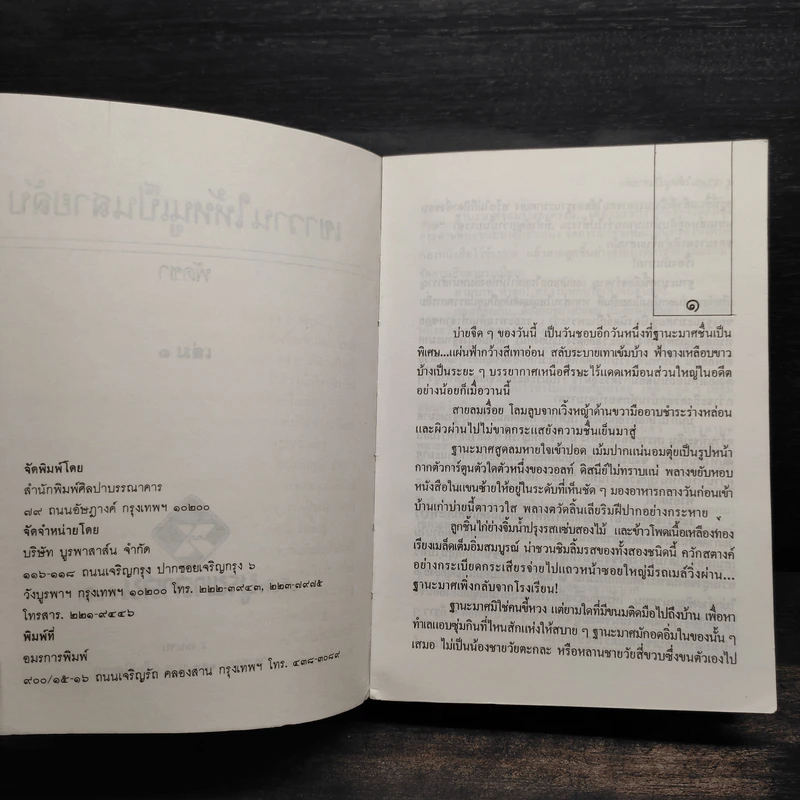 จัดพิมพ์โดย
สำนักพิมพ์ศิลปาบรรณาคาร
๗๙ ถนนอัษฎางค์ กรุงเทพฯ ๑๐๒๐๐
จัดจำหน่ายโดย
บริษัท บูรพาสาส์น จำกัด
๑๑๖-๑๑๘ ถนนเจริญกรุง ปากซอยเจริญกรุง ๖
วังบูรพาฯ กรุงเทพฯ ๑๐๒๐๐ โทร. ๒๒๒-๓๙๔๓, ๒๒๓-๗๙๔๕
โทรสาร. ๒๒๑-๙๔๔๖
พิมพ์ที่
อมรการพิมพ์
๙๐๐/๑๕-๑๖ ถนนเจริญรัถ คลองสาน กรุงเทพฯ โทร. ๔๓๘-๓๐๘๙
๑
บ่ายจืด ๆ ของวันนี้ เป็นวันชอบอีกวันหนึ่งที่ฐานะมาศชื่นเป็น
พิเศษ...แผ่นฟ้ากว้างสีเทาอ่อน สลับระบายเทาเข้มบ้าง ฟ้าจางเหลือบขาว
บ้างเป็นระยะ ๆ บรรยากาศเหนือศีรษะไร้แดดเหมือนส่วนใหญ่ในอดีต
อย่างน้อยก็เมื่อวานนี้
สายลมเรื่อย โลมลูบจากเวิ้งหญ้าด้านขวามืออาบชำระร่างหล่อน
และผิวผ่านไปไม่ขาดกระแสยังความชื่นเย็นมาสู่
ฐานะมาศสูดลมหายใจเข้าปอด เม้มปากแน่นอมตุ่ยเป็นรูปหน้า
กากตัวการ์ตูนตัวใดตัวหนึ่งของวอลท์ ดิสนีย์ไม่ทราบแน่ พลางขยับหอบ
หนังสือในแขนซ้ายให้อยู่ในระดับที่เห็นชัด ๆ มองอาหารกลางวันก่อนเข้า
บ้านเก่าบ่ายนี้ตาวาวใส พลางตวัดลิ้นเลียริมฝีปากอย่างกระหาย
ลูกชิ้นไก่ย่างจิ้มน้ำปรุงรสแซ่บสองไม้ และข้าวโพดเนื้อเหลืองท่อง
เรียงเมล็ดเต็มอิ่มสมบูรณ์ น่าชวนชิมลิ้มรสของทั้งสองชนิดนี้ ควักสตางค์
อย่างกระเบียดกระเสียรจ่ายไปแถวหน้าซอยใหญ่มีรถเมล์วิ่งผ่าน...
ฐานะมาศเพิ่งกลับจากโรงเรียน!
ฐานะมาศมิใช่คนขี้หวง แต่ยามใดที่มีขนมติดมือไปถึงบ้าน เพื่อหา
ทำเลแอบซุ่มกินที่ไหนสักแห่งให้สบาย ๆ ฐานะมาศมักอดอิ่มในของนั้น ๆ
เสมอ ไม่เป็นน้องชายวัยตะกละ หรือหลานชายวัยสี่ขวบซึ่งขนตัวเองไป